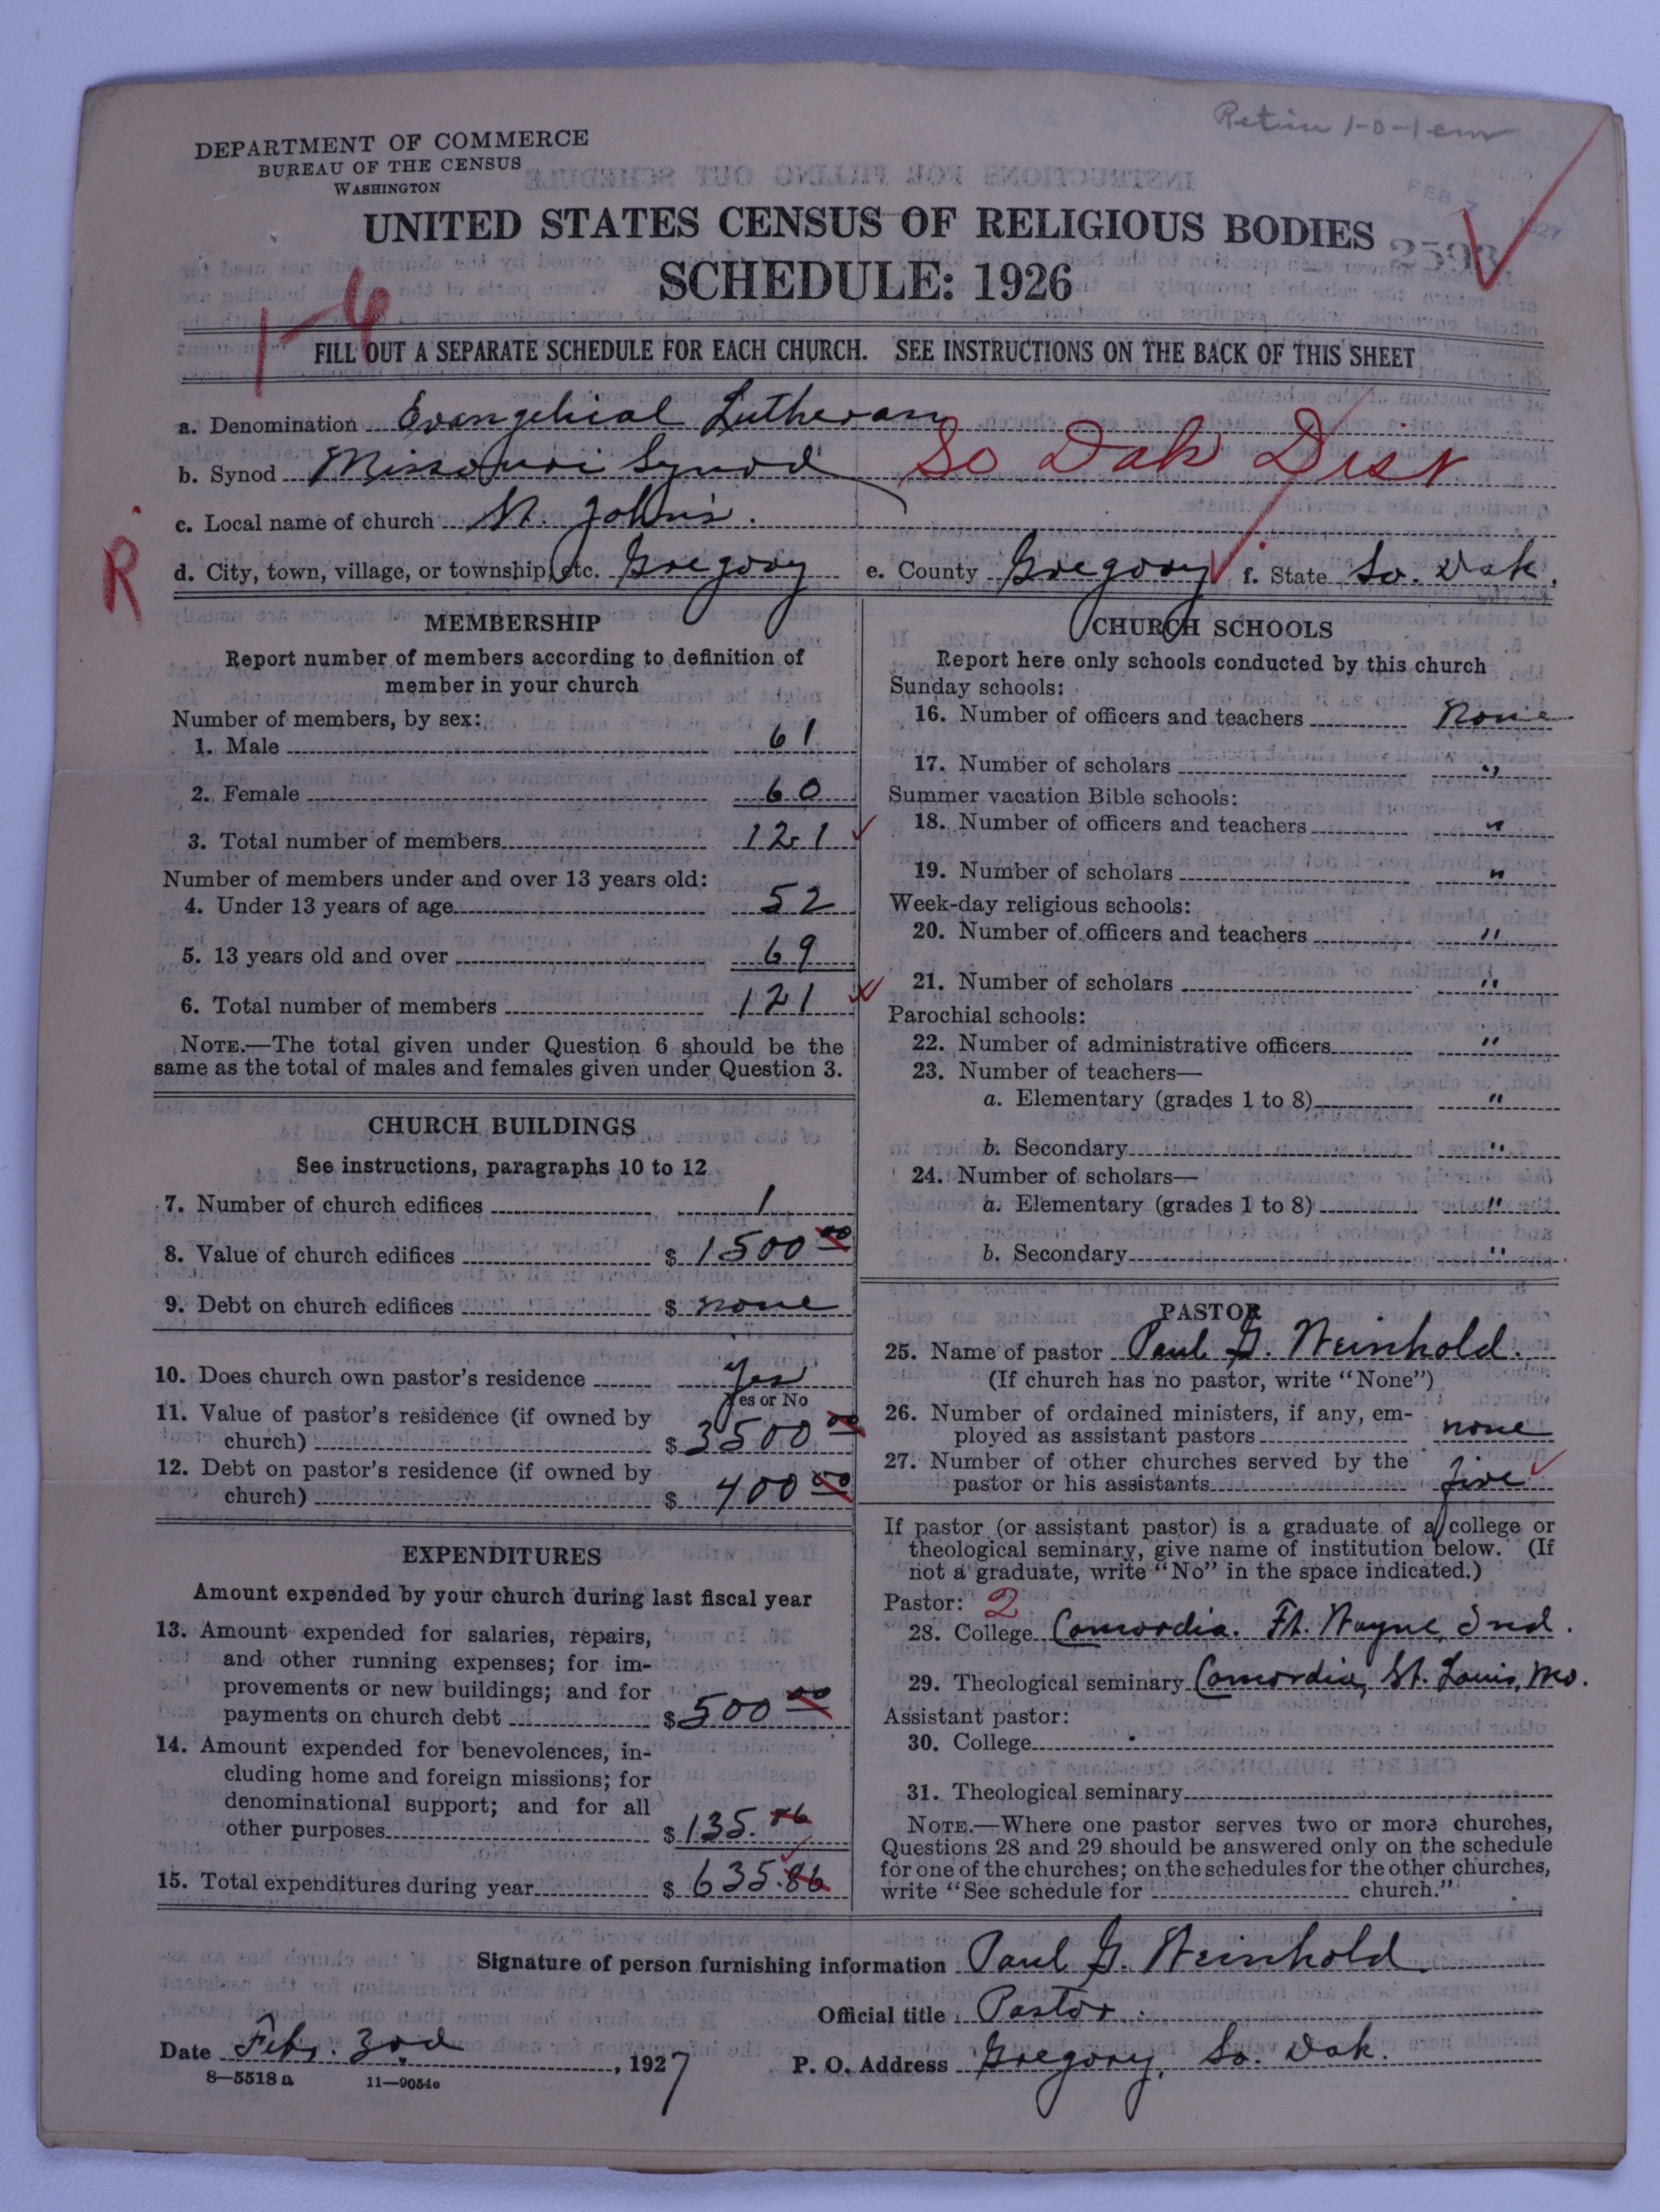 DEPARTMENT OF COMMERCE
BUREAU OF THE CENSUS
WASHINGTON
FEB 7 1927
UNITED STATES CENSUS OF RELIGIOUS BODIES
SCHEDULE: 1926
1-6
FILL OUT A SEPARATE SCHEDULE FOR EACH CHURCH. SEE INSTRUCTIONS ON THE BACK OF THIS SHEET
a. Denomination Evangelical Lutheran
b. Synod Missouri Synod So Dak Dist
c. Local name of church St. John's.
R
d. City, town, village, or township, etc. Gregory e. County Gregory f. State So. Dak.
MEMBERSHIP
Report number of members according to definition of
member in your church
Number of members, by sex:
1. Male 61
2. Female 60
3. Total number of members 121
Number of members under and over 13 years old:
4. Under 13 years of age 52
5. 13 years old and over 69
6. Total number of members 121
NOTE.—The total given under Question 6 should be the
same as the total of males and females given under Question 3.
CHURCH BUILDINGS
See instructions, paragraphs 10 to 12
7. Number of church edifices 1
8. Value of church edifices $ 1500 00
9. Debt on church edifices $ none
10. Does church own pastor's residence yes
Yes or No
11. Value of pastor's residence (if owned by
church) $ 3500 00
12. Debt on pastor's residence (if owned by
church) $ 400 00
EXPENDITURES
Amount expended by your church during last fiscal year
13. Amount expended for salaries, repairs,
and other running expenses; for im-
provements or new buildings; and for
payments on church debt $ 500 00
14. Amount expended for benevolences, in-
cluding home and foreign missions; for
denominational support; and for all
other purposes $ 135.
15. Total expenditures during year $ 635.86
CHURCH SCHOOLS
Report here only schools conducted by this church
Sunday schools:
16. Number of officers and teachers None
17. Number of scholars "
Summer vacation Bible schools:
18. Number of officers and teachers "
19. Number of scholars "
Week-day religious schools:
20. Number of officers and teachers "
21. Number of scholars "
Parochial schools:
22. Number of administrative officers "
23. Number of teachers—
a. Elementary (grades 1 to 8) "
b. Secondary "
24. Number of scholars—
a. Elementary (grades 1 to 8) "
b. Secondary "
PASTOR
25. Name of pastor Paul G. Weinhold.
(If church has no pastor, write "None")
26. Number of ordained ministers, if any, em-
ployed as assistant pastors none
27. Number of other churches served by the
pastor or his assistants five
If pastor (or assistant pastor) is a graduate of a college or
theological seminary, give name of institution below. (If
not a graduate, write "No" in the space indicated.)
Pastor: 2
28. College Concordia. Ft. Wayne, Ind.
29. Theological seminary Concordia, St. Louis, Mo.
Assistant pastor:
30. College
31. Theological seminary
NOTE.—Where one pastor serves two or more churches,
Questions 28 and 29 should be answered only on the schedule
for one of the churches; on the schedules for the other churches,
write "See schedule for church."
Signature of person furnishing information Paul G. Weinhold
Official title Pastor.
Date Feb. 3rd, 1927 P. O. Address Gregory, So. Dak.
8—5518 a 11—9054e